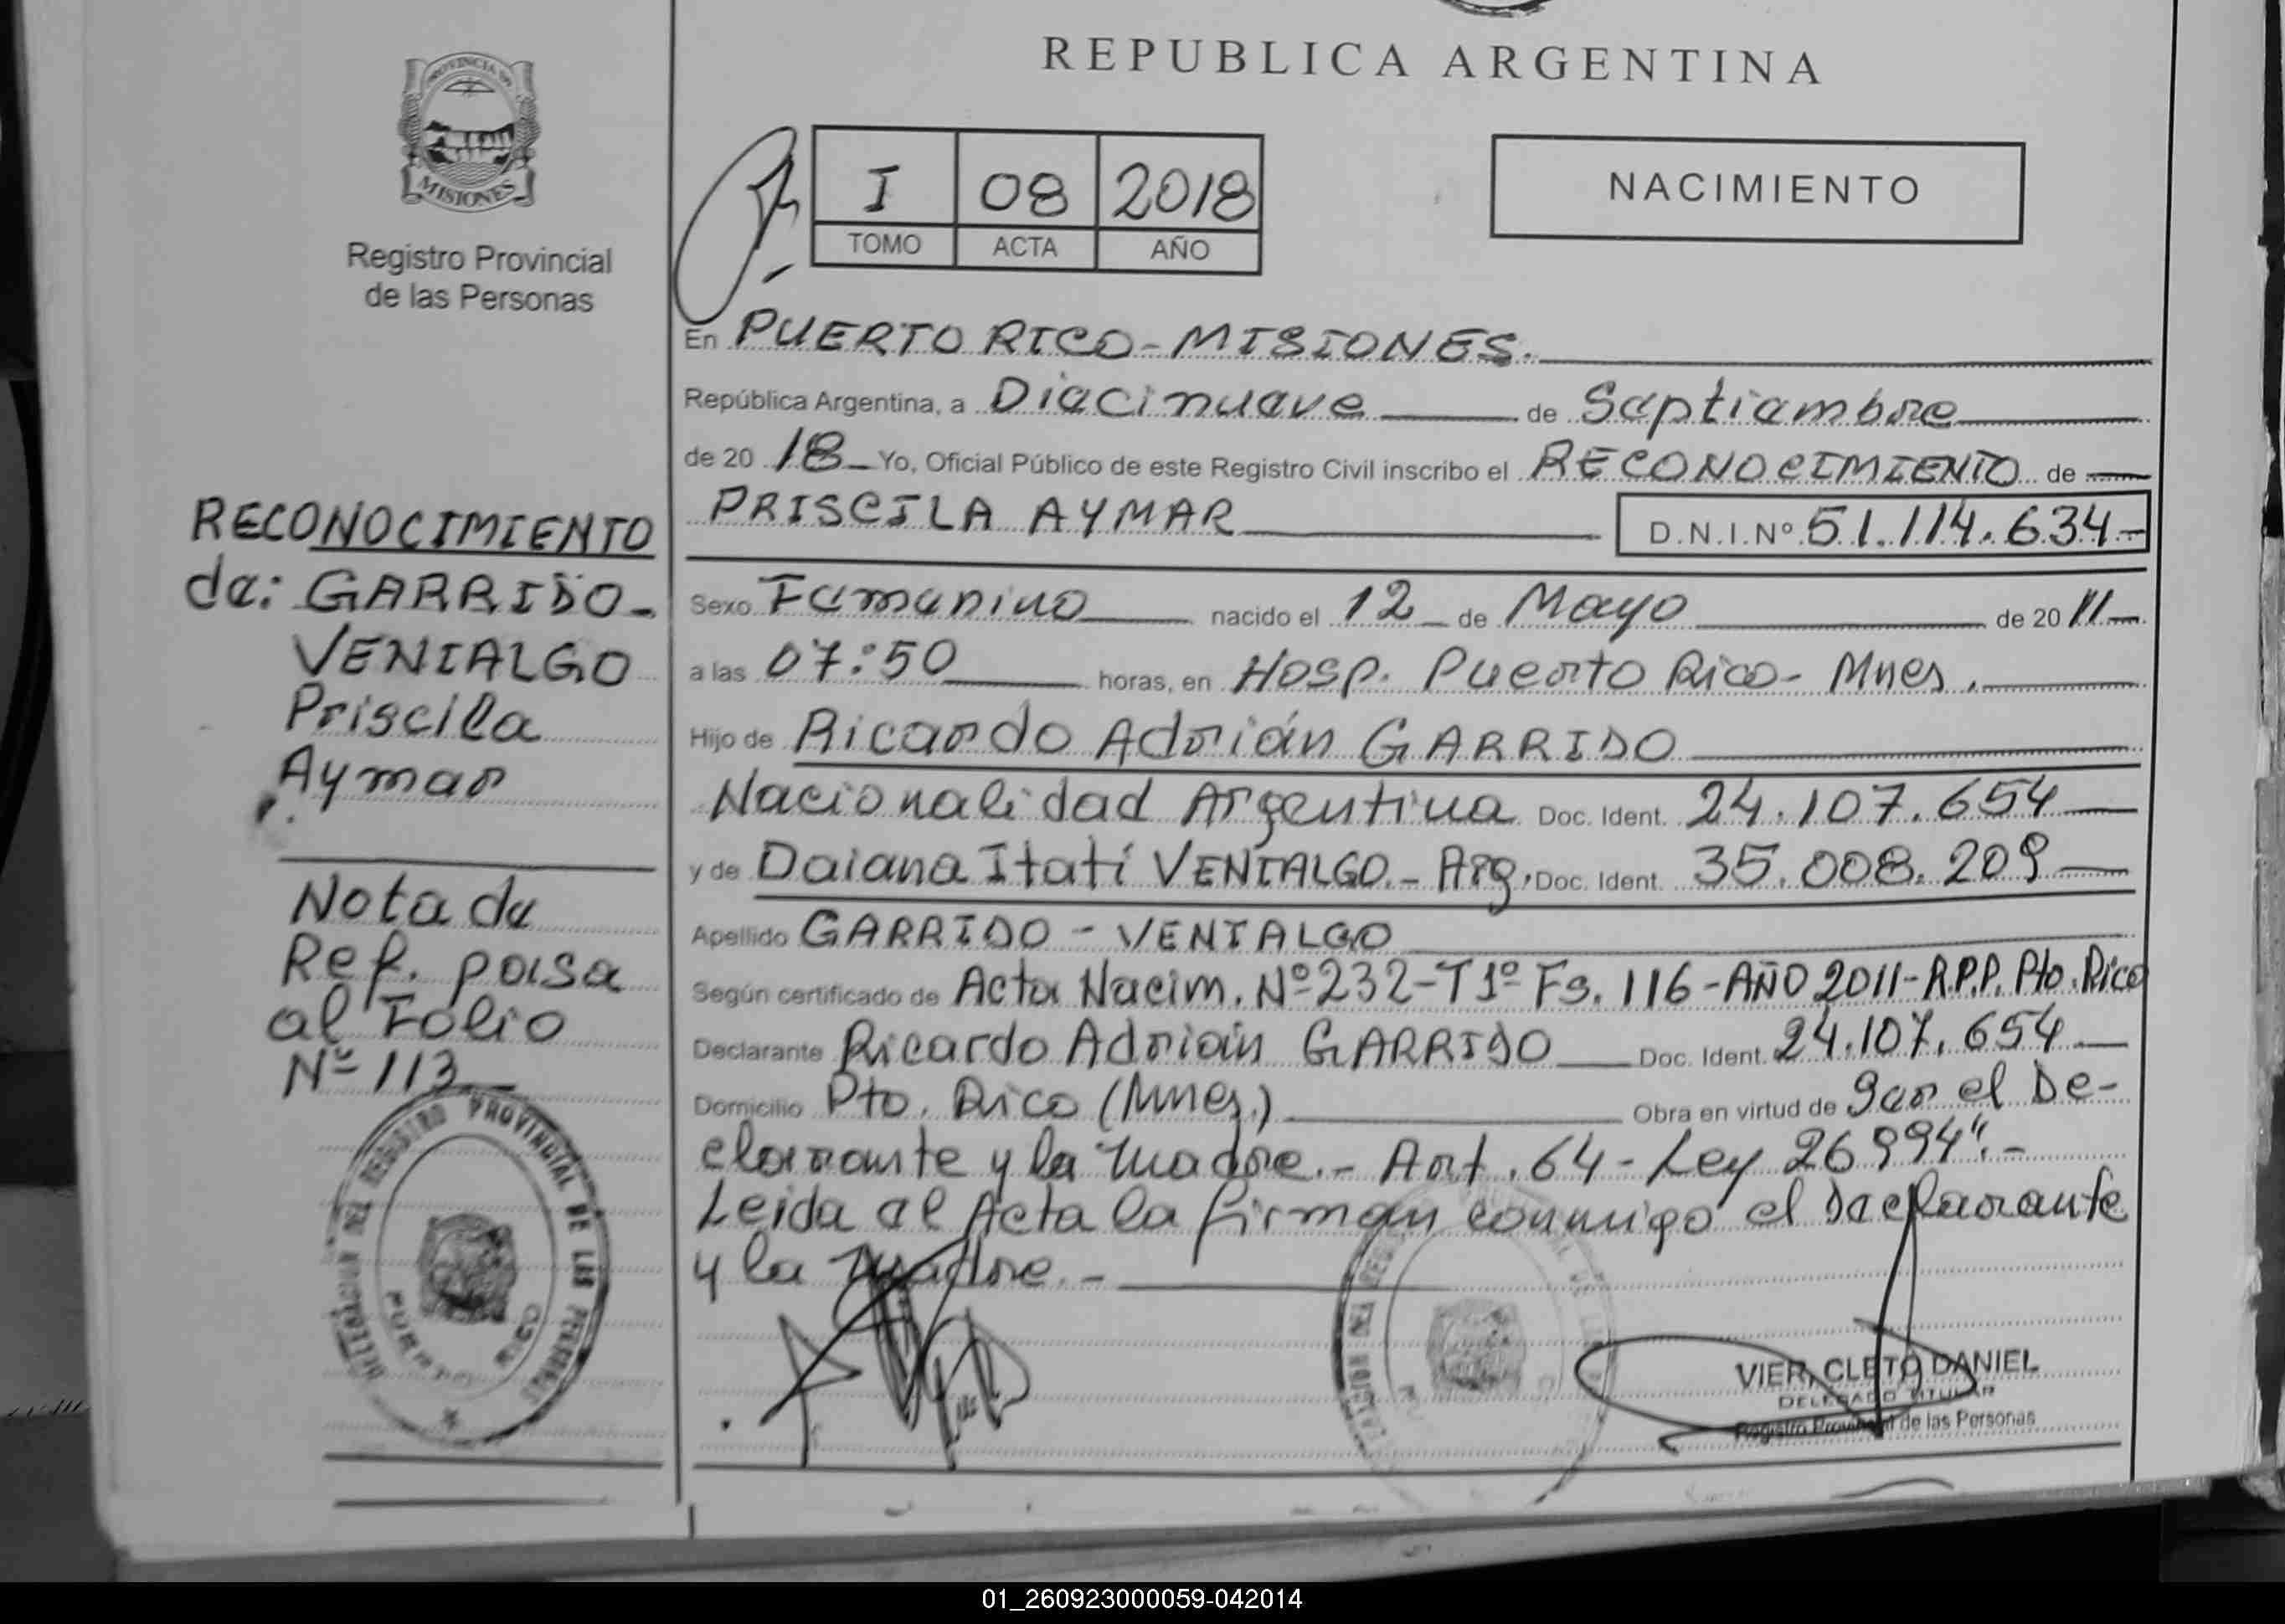 REPUBLICA ARGENTINA
PROVINCIA DE
MISIONES
Registro Provincial
de las Personas
I 08 2018
TOMO ACTA AÑO
NACIMIENTO
En PUERTO RICO-MISIONES.
República Argentina, a Diecinueve de Septiembre
de 20 18 Yo, Oficial Público de este Registro Civil inscribo el RECONOCIMIENTO de
PRISCILA AYMAR D.N.I.Nº 51.114.634-
Sexo Femenino nacido el 12 de Mayo de 20 11
a las 07:50 horas, en Hosp. Puerto Rico- Mnes.
Hijo de Ricardo Adrián GARRIDO
Nacionalidad Argentina Doc. Ident. 24.107.654
y de Daiana Itatí VENIALGO.- Arg. Doc. Ident. 35.008.209
Apellido GARRIDO - VENIALGO
Según certificado de Acta Nacim. Nº 232-T1º Fs. 116-AÑO 2011-R.P.P. Pto. Rico
Declarante Ricardo Adrián GARRIDO Doc. Ident. 24.107.654
Domicilio Pto. Rico (Mnes.) Obra en virtud de ser el De-
clarante y la Madre.- Art. 64-Ley 26994".-
Leida el Acta la firman conmigo el Declarante
y la Madre.-
RECONOCIMIENTO
de: GARRIDO-
VENIALGO
Priscila
Aymar
Nota de
Ref. pasa
al Folio
Nº 113
REGISTRO PROVINCIAL DE LAS PERSONAS
PUERTO RICO
VIER, CLETO DANIEL
DELEGADO TITULAR
Registro Provincial de las Personas
01_260923000059-042014